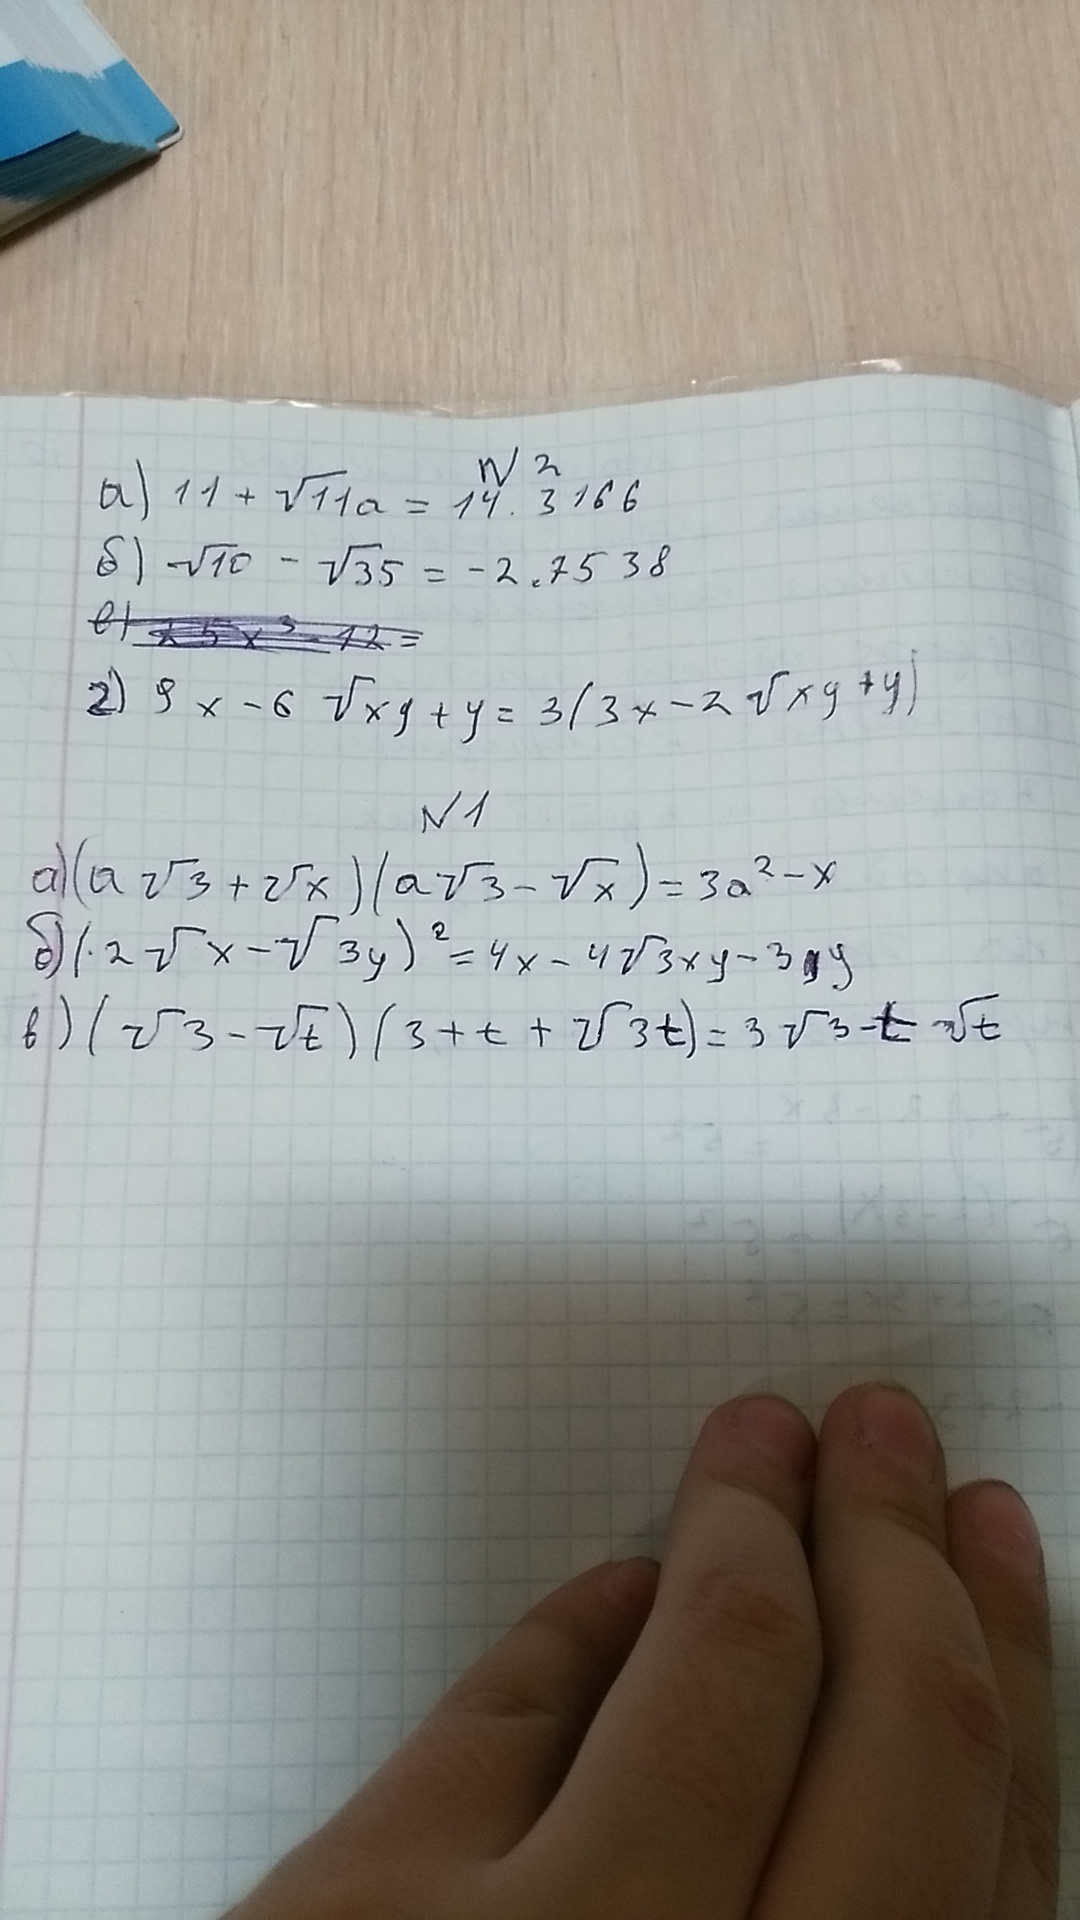 N 2
а) 11 + √11a = 14.3166
б) √10 - √35 = -2.7538
в)
г) 9x - 6 √xy + y = 3(3x - 2 √xy + y)
N1
а) (a√3 + √x)(a√3 - √x) = 3a² - x
б) (2√x - √3y)² = 4x - 4√3xy - 3y
в) (√3 - √t)(3 + t + √3t) = 3√3 - t √t